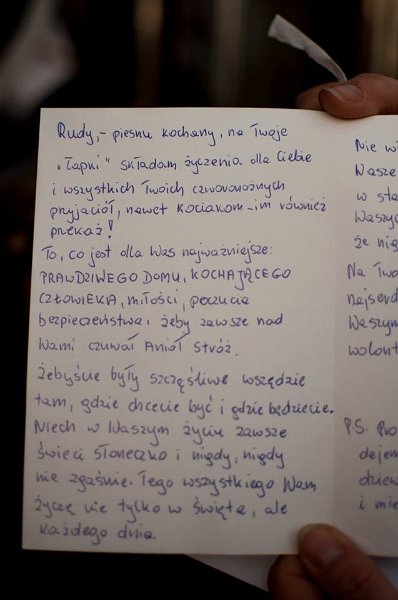 Rudy,- piesku kochany, na Twoje
„Łapki" składam życzenia dla Ciebie
i wszystkich Twoich czworonożnych
przyjaciół, nawet kociakom - im również
przekaż!
To, co jest dla Was najważniejsze:
PRAWDZIWEGO DOMU, KOCHAJĄCEGO
CZŁOWIEKA, miłości, poczucia
bezpieczeństwa i żeby zawsze nad
Wami czuwał Anioł Stróż.
Żebyście były szczęśliwe wszędzie
tam, gdzie chcecie być i gdzie będziecie.
Niech w Waszym życiu zawsze
świeci słoneczko i nigdy, nigdy
nie zgaśnie. Tego wszystkiego Wam
życzę nie tylko w święta, ale
każdego dnia.
Nie w
Wasze
w sta
Waszyc
że nig
Na Two
najserd
Waszym
wolont
P.S. Pro
dejem
dziew
i mie